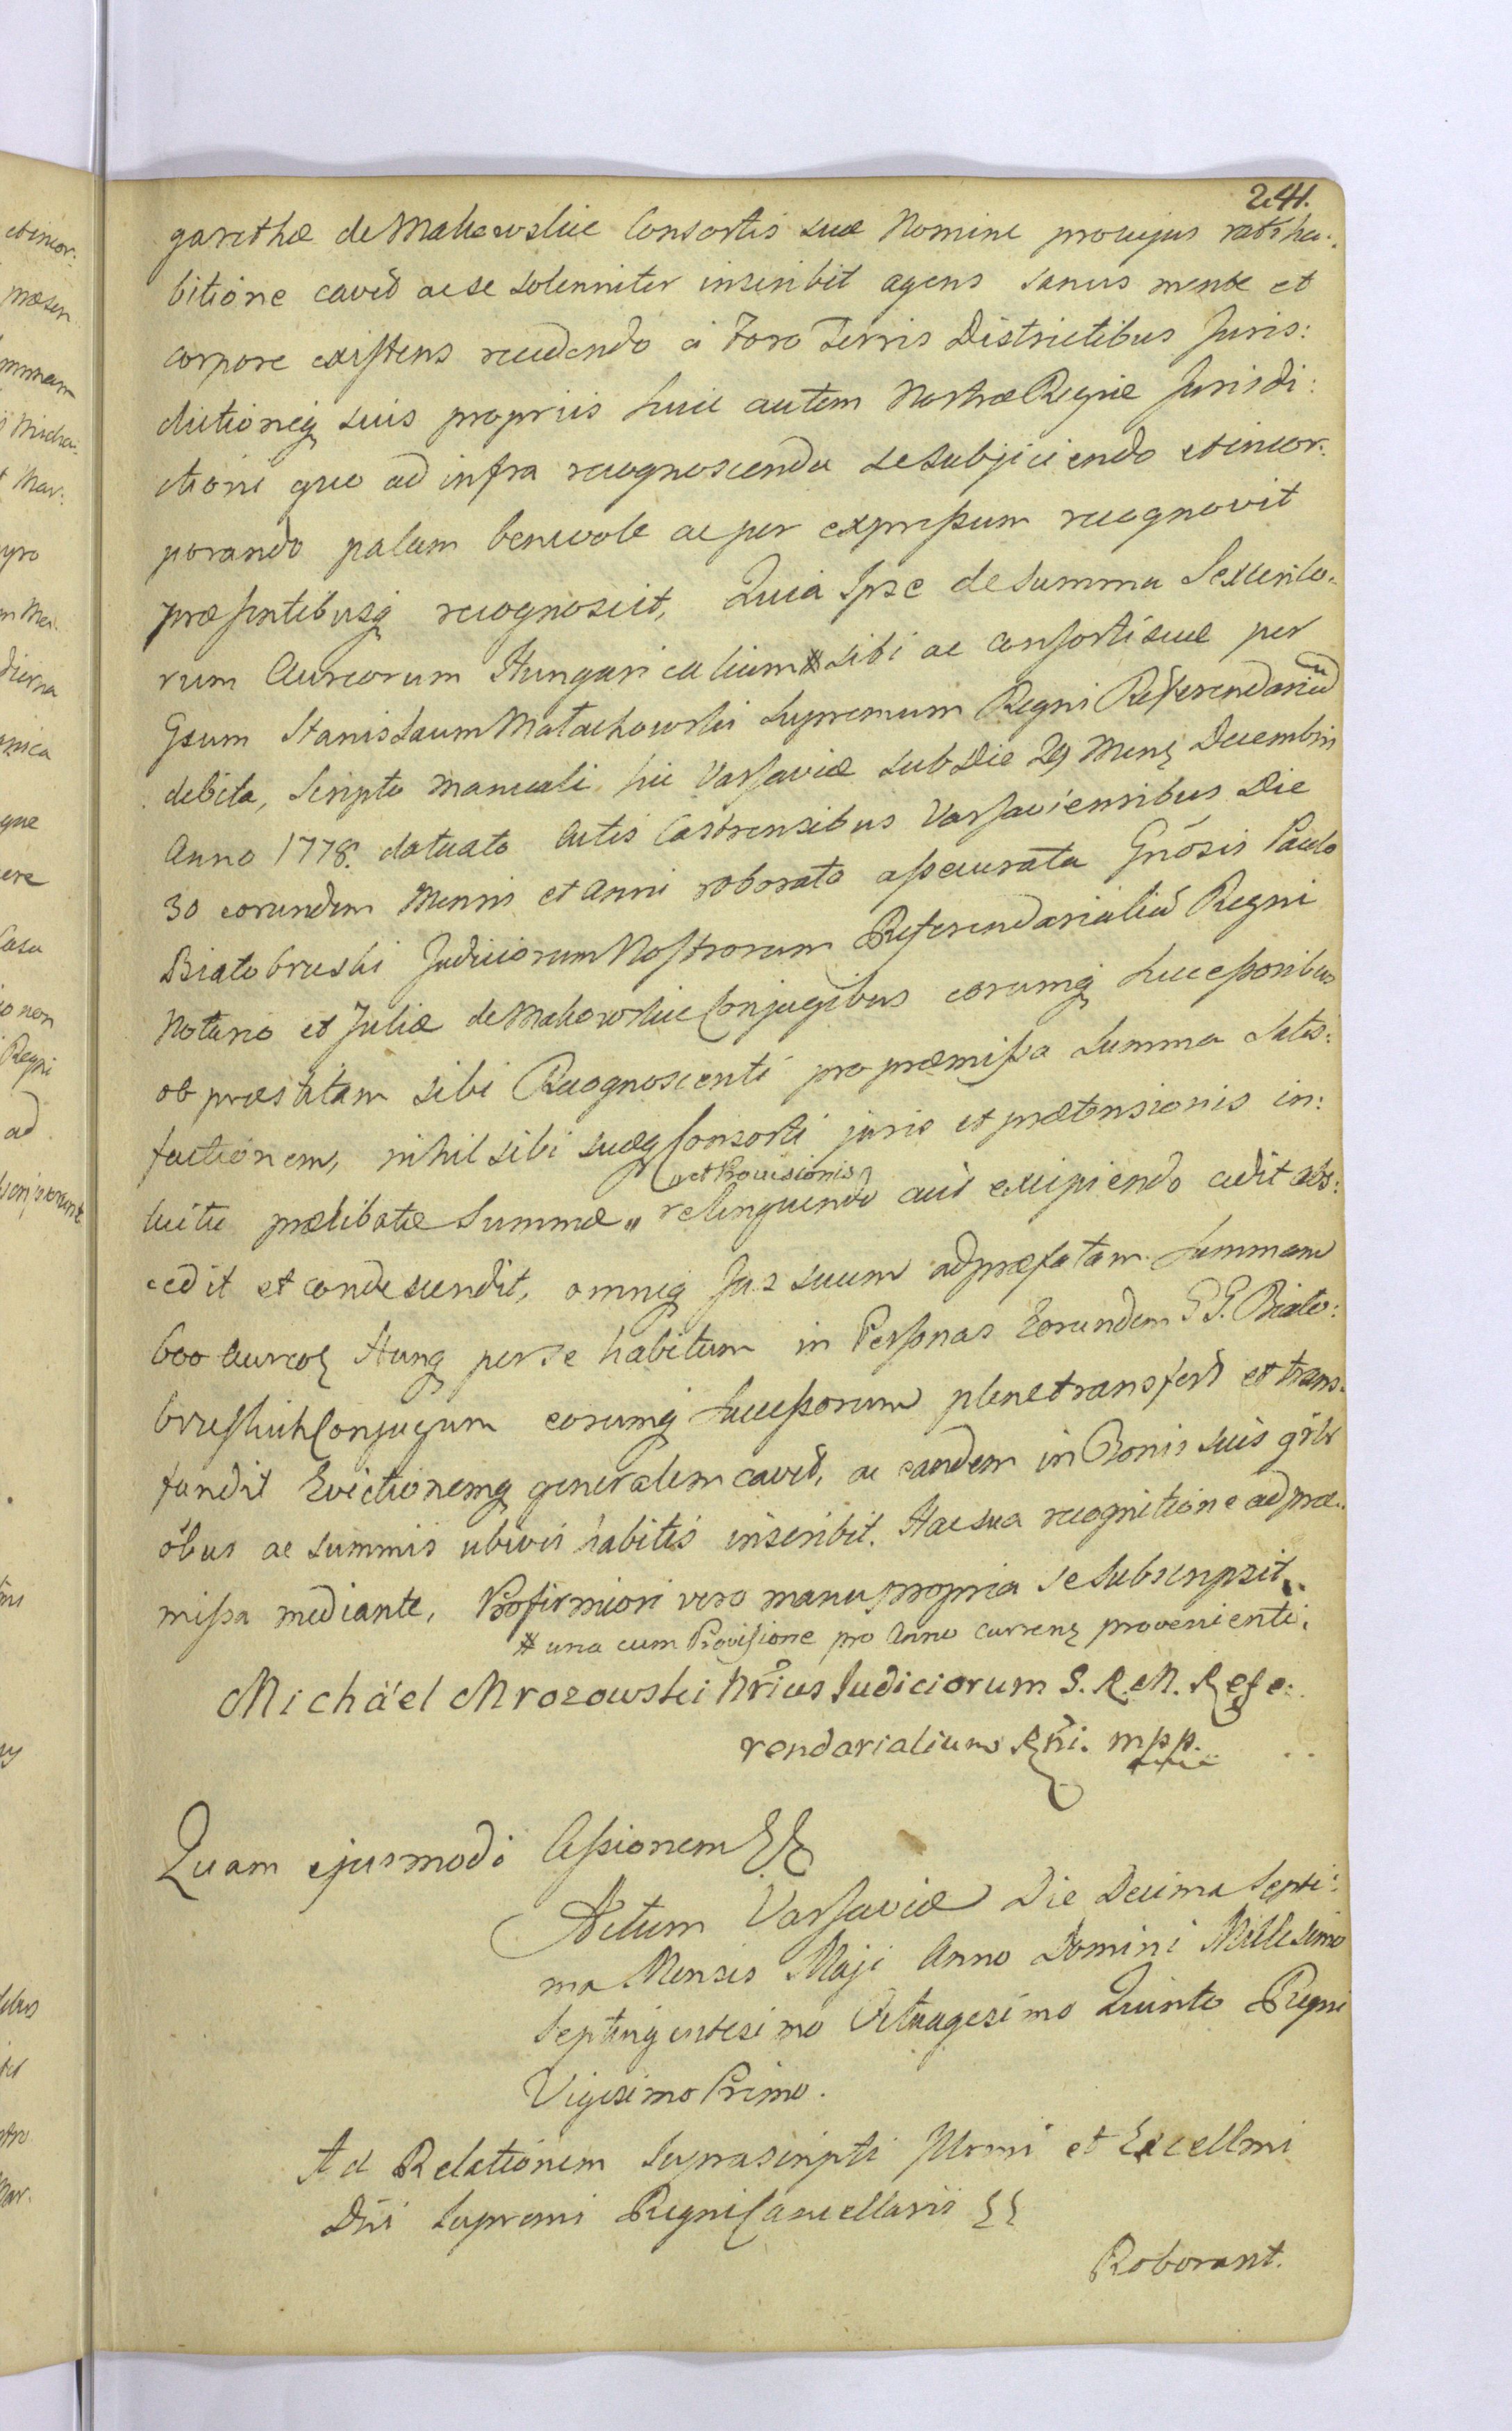 241.
garethæ de Makowskie Consortis suæ Nomine pro cujus ratiha:
bitione cavet ac se solenniter inscribit agens sanus mente et
corpore existens recedendo a Foro Terris Districtibus Juris:
dictioneq suis propriis huic autem Nostræ Regiæ Jurisdi:
ctioni quo ad infra recognoscenda se subjiciendo et incor:
porando palam benevole ac per expressum recognovit
præsentibusq recognoscit, Quia Ipse de Summa Sexcento:
rum Aureorum Hungaricalium * sibi ac consorti suæ per
Gsum Stanislaum Małachowski Supremum Regni Referendariũ
debita, Scripto manuali hic Varsaviæ sub Die 29 Mens Decembris
Anno 1778. datuato Actis Castrensibus Varsaviensibus Die
30 eorundem Mensis et Anni roborato assecurata Gnõsis Paulo
Białobrzeski Judiciorum Nostrorum Referendarialiũ Regni
Notario et Juliæ de Makowskie Conjugibus eorumq Successoribus
ob præstitam sibi Recognoscenti pro præmissa Summa Satis:
factionem, nihil sibi suæq Consorti juris et prætensionis in:
tuitu prælibatæ Summæ " relinquendo aut excipiendo cedit abs:
et Provisionis
cedit et condescendit, omneq Jus suum ad præfatam Summam
600 Aureor Hung per se habitum in Personas Eorundem G G. Biało:
brzeskich Conjugum eorumq Successorum plene transfert et trans:
fundit Evictionemq generalem cavet, ac eandem in Bonis suis gñlr
õbus ac Summis ubivis habitis inscribit. Hac sua recognitione ad præ:
missa mediante, Pro firmiori vero manu propria se subscripsit.
* una cum Provisione pro Anno currens provenienti.
Michäel Mrozowski Nrius Judiciorum S. R. M. Refe:
rendarialium Rñi. mpp.
Quam ejusmodi Cessionem &&
Actum Varsaviæ Die Decima Septi:
ma Mensis Maji Anno Domini Millesimo
Septingentesimo Octuagesimo Quinto Regni
Vigesimo Primo.
Ad Relationem Suprascripti Illrmi et Excellmi
Dñi Supremi Regni Cancellarii &&
Roborant.